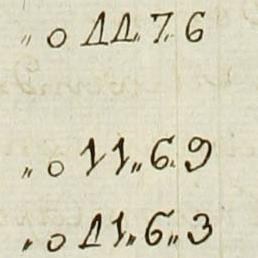 „ 0 11„ 7„ 6
„ 0 11„ 6„ 9
„ 0 11„ 6„ 3